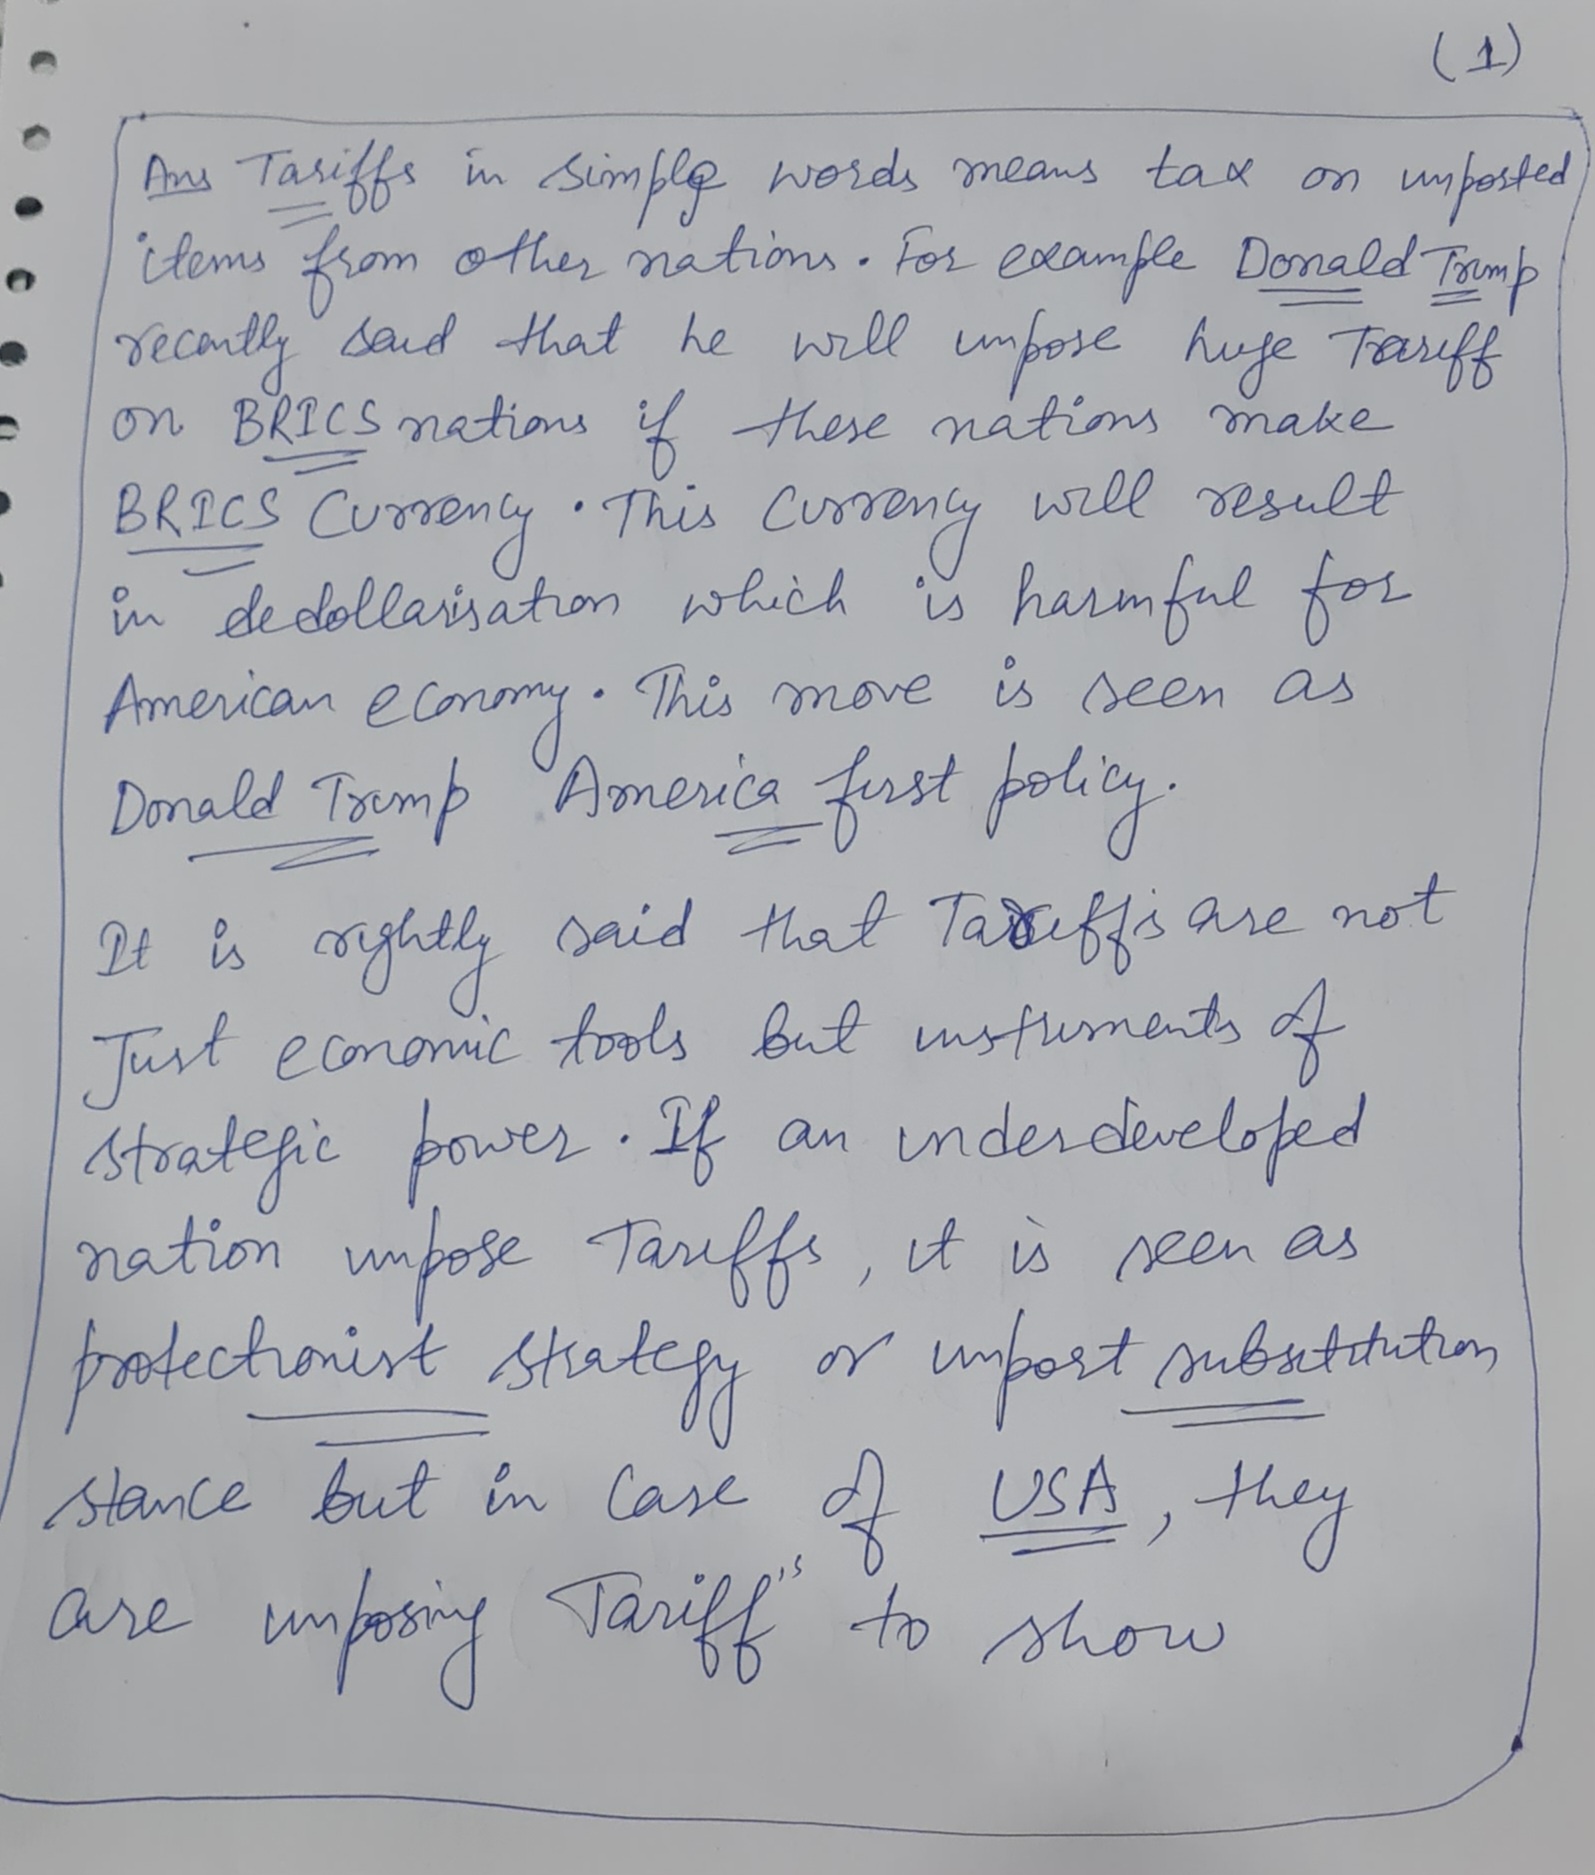 (1)
Ans Tariffs in simple words means tax on imported
items from other nations. For example Donald Trump
recently said that he will impose huge Tariff
on BRICS nations if these nations make
BRICS Currency. This currency will result
in dedollarisation which is harmful for
American economy. This move is seen as
Donald Trump America first policy.
It is rightly said that Tariffs are not
Just economic tools but instruments of
strategic power. If an underdeveloped
nation impose Tariffs, it is seen as
protectionist strategy or import substitution
stance but in case of USA, they
are imposing Tariff's to show